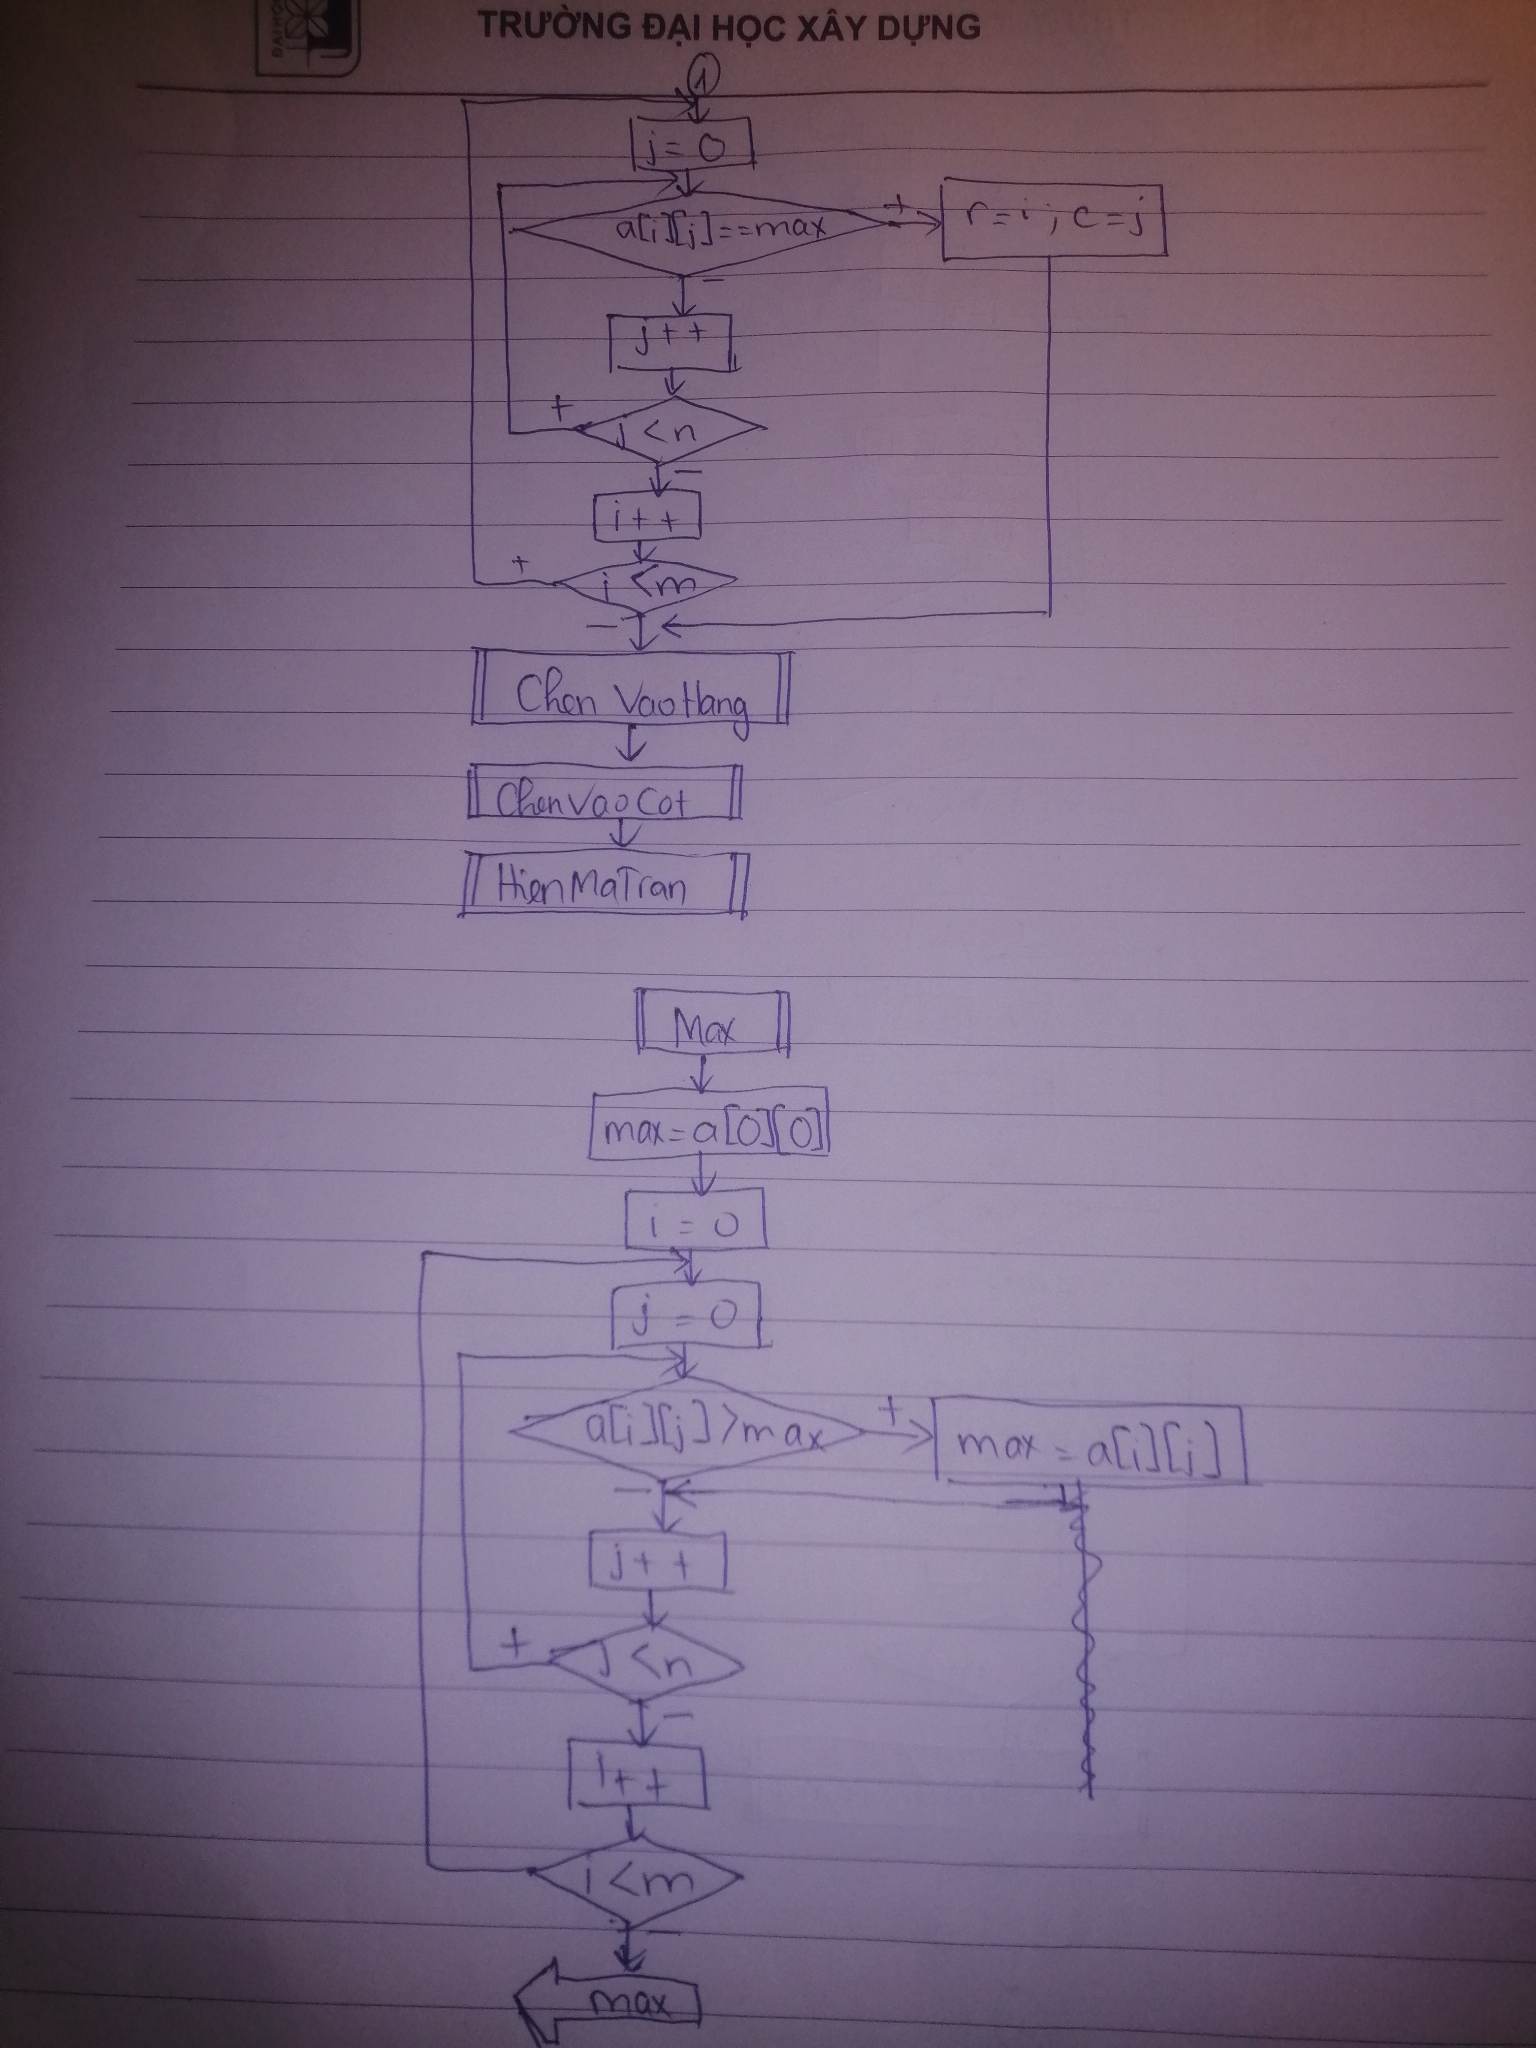 ĐẠI HỌC
TRƯỜNG ĐẠI HỌC XÂY DỰNG
1
j = 0
a[i][j]==max + r=i ; c=j
-
j++
+ j<n
-
i++
+ i<m
-
Chen VaoHang
ChenVaoCot
HienMaTran
Max
max=a[0][0]
i = 0
j = 0
a[i][j]>max + max = a[i][j]
-
j++
+ j<n
-
i++
i<m
-
max